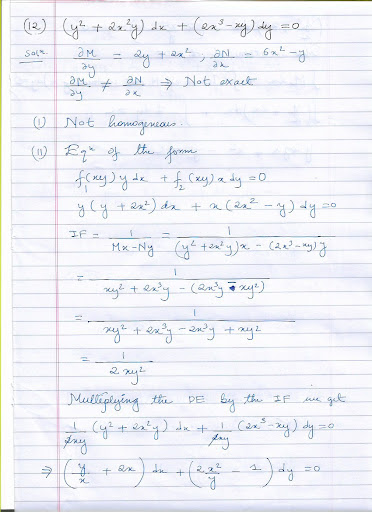 (12.) (y² + 2x²y) dx + (2x³ - xy) dy = 0
Solⁿ ∂M/∂y = 2y + 2x² , ∂N/∂x = 6x² - y
∂M/∂y ≠ ∂N/∂x ⇒ Not exact
(I) Not homogeneous.
(II) Eqⁿ of the form
f₁(xy) y dx + f₂(xy) x dy = 0
y (y + 2x²) dx + x (2x² - y) dy = 0
IF = 1/(Mx - Ny) = 1/((y² + 2x²y)x - (2x³ - xy)y)
= 1/(xy² + 2x³y - (2x³y - xy²))
= 1/(xy² + 2x³y - 2x³y + xy²)
= 1/(2xy²)
Multiplying the DE by the IF we get
1/xy (y² + 2x²y) dx + 1/xy (2x³ - xy) dy = 0
⇒ (y/x + 2x) dx + (2x²/y - 1) dy = 0